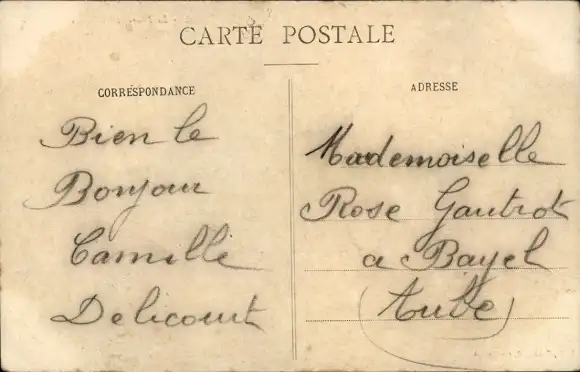 CARTE POSTALE
CORRESPONDANCE
Bien le
Bonjour
Camille
Delicourt
ADRESSE
Mademoiselle
Rose Gautrot
a Bayel
(Aube)